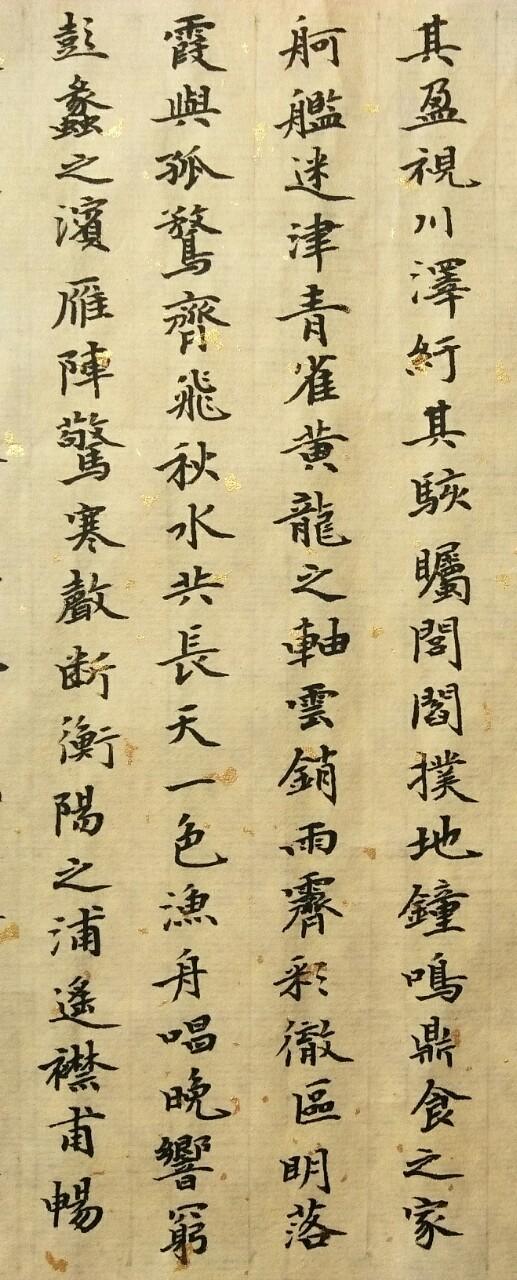 其盈視川澤紆其駭矚閭閻撲地鐘鳴鼎食之家
舸艦迷津青雀黄龍之軸雲銷雨霽彩徹區明落
霞與孤鶩齊飛秋水共長天一色漁舟唱晚響窮
彭蠡之濱雁陣驚寒聲断衡陽之浦遙襟甫暢